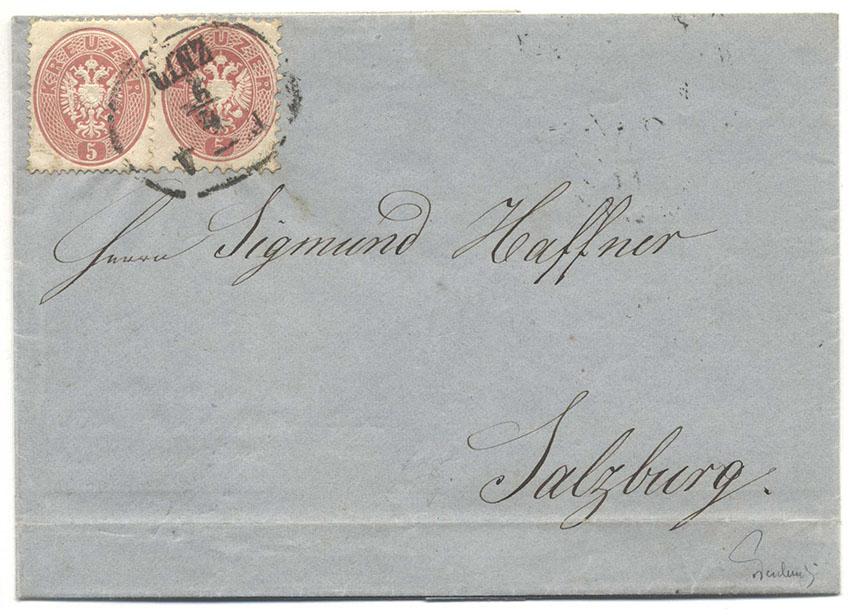 KREUZER KREUZER
5 5
LINZ
Herrn Sigmund Haffner
Salzburg.